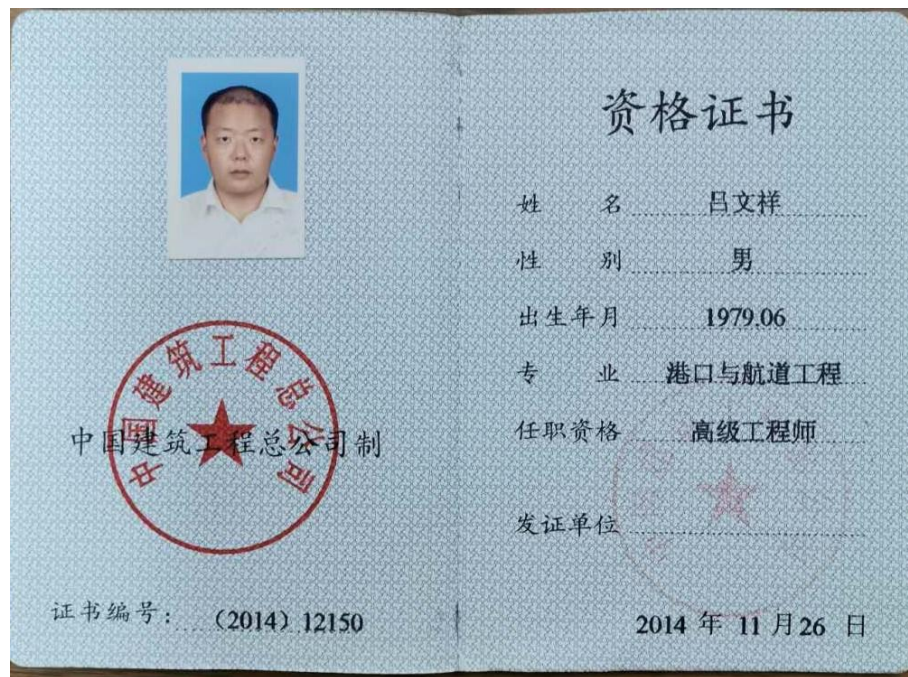 中国建筑工程总公司
中国建筑工程总公司制
证书编号：（2014）12150
资格证书
姓 名 吕文祥
性 别 男
出生年月 1979.06
专 业 港口与航道工程
任职资格 高级工程师
发证单位
2014 年 11 月 26 日